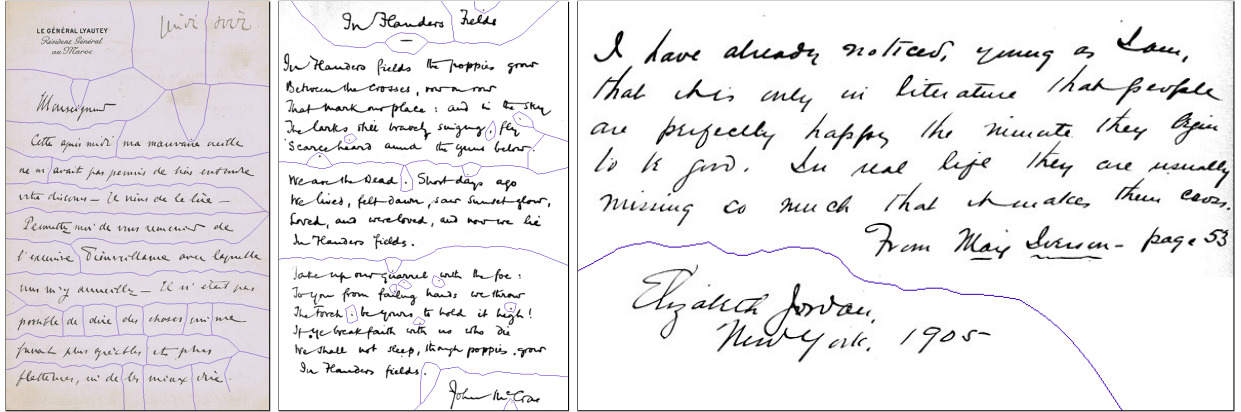 LE GÉNÉRAL LYAUTEY
Résident Général
au Maroc
Monseigneur
Cette après midi ma mauvaise oreille
ne m'avait pas permis de bien entendre
votre discours – Je viens de le lire –
Permettez moi de vous remercier de
l'extrême bienveillance avec laquelle
vous m'y accueillez – Il n'était pas
possible de dire des choses qui me
fussent plus agréables et plus
flatteuses, ni de les mieux dire.
In Flanders Fields
—
In Flanders fields the poppies grow
Between the crosses, row on row
That mark our place : and in the sky
The larks still bravely singing, fly
Scarce heard amid the guns below.
We are the Dead. Short days ago
We lived, felt dawn, saw sunset glow,
Loved, and were loved, and now we lie
In Flanders fields.
Take up our quarrel with the foe :
To you from failing hands we throw
The torch : be yours to hold it high!
If ye break faith with us who die
We shall not sleep, though poppies grow
In Flanders fields.
John McCrae
I have already noticed, young as I am,
that it is only in literature that people
are perfectly happy the minute they begin
to be good. In real life they are usually
missing so much that it makes them cross.
From May Iverson – page 53
Elizabeth Jordan,
New York, 1905